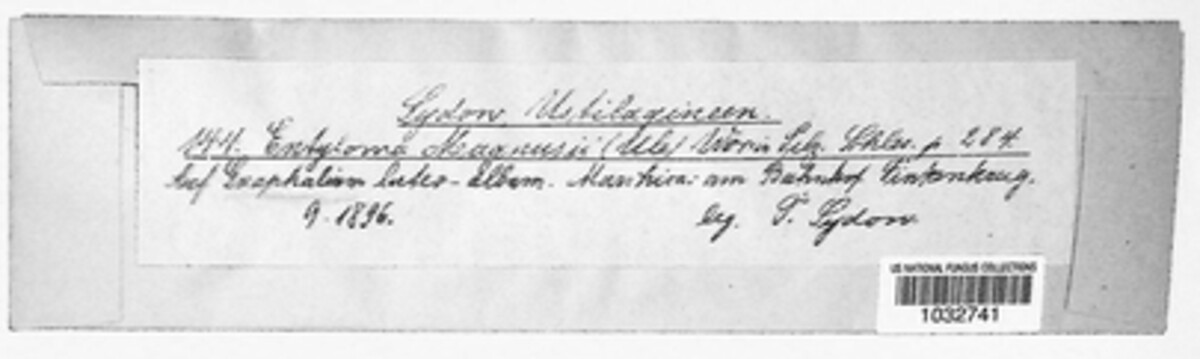 Sydow, Ustilagineen.
144. Entyloma Magnusii (Ule) Woron. Schles. p. 284.
Auf Gnaphalium luteo-album. Marchica: am Bahnhof Finkenkrug.
9. 1896. leg. P. Sydow
US NATIONAL FUNGUS COLLECTIONS
1032741